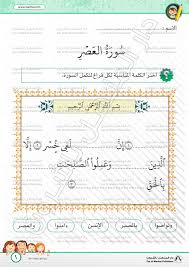 الاسم:
سُورَةُ العَصْرِ
أختر الكلمة المناسبة لكل فراغ لتكتمل السورة.
بِسْمِ اللَّهِ الرَّحْمَٰنِ الرَّحِيمِ
① إِنَّ لَفِي خُسْرٍ ② إِلَّا
الَّذِينَ وَعَمِلُوا الصَّالِحَاتِ
بِالْحَقِّ
وتواصوا بالصبر الإنسن ءامنوا والعصر